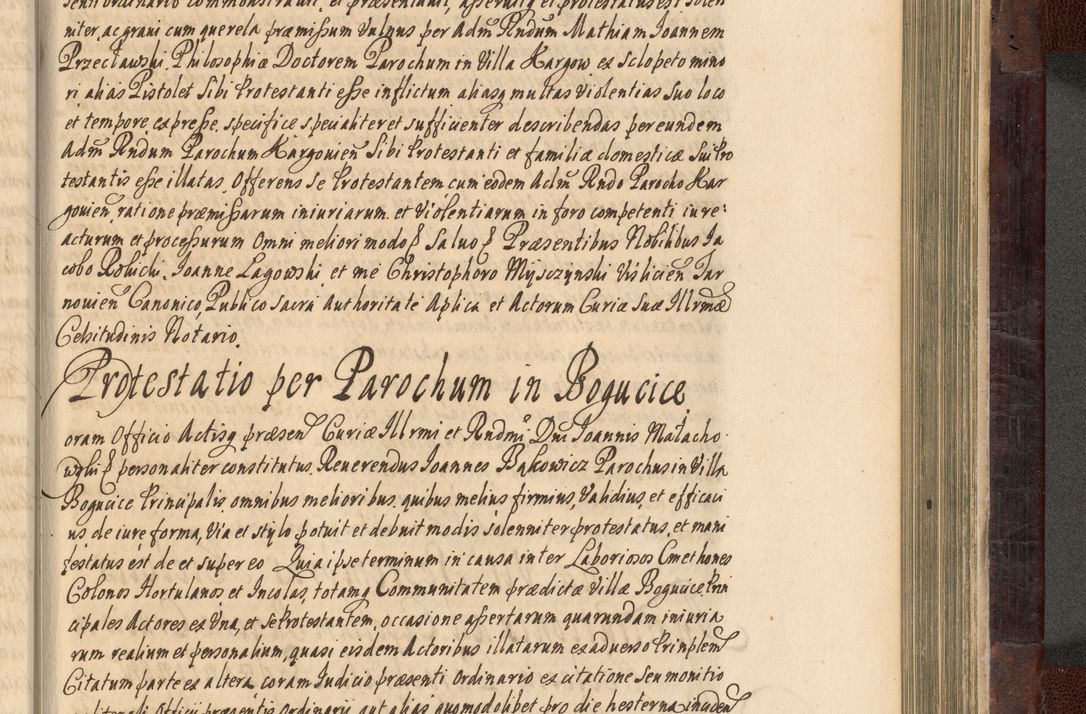 senti ordinario commonstravit, et præsentavit, asseruitq et protestatus est solen
niter, ac gravi cum querela præmissum Vulnus per Adm̃ Rndum Mathiam Joannem
Przecławski Philosophiæ Doctorem Parochum in Villa Kargow ex Sclopeto mino
ri alias Pistolet Sibi Protestanti esse inflictum aliasq multas Violentias Suo loco
et tempore expresse, specifice specialiter et sufficienter describendas per eundem
Adm̃ Rndum Parochum Kargovien̄ Sibi Protestanti et familiæ domesticæ Sui Pro
testantis esse illatas. Offerens Se Protestantem cum eodem Adm̃ Rndo Parocho Kar
govien, ratione præmissarum iniuriarum et Violentiarum in foro competenti iure
acturum et processurum Omni meliori modo Salvo Præsentibus Nobilibus Ja
cobo Rolicki, Joanne Lagowski, et me Christophoro Mysczynski Vislicien̄ Tar
novien̄ Canonico, Publico Sacra Authoritate Aplica et Actorum Curiæ Suæ Illrmæ
Celsitudinis Notario.
Protestatio per Parochum in Bogucice
oram Officio Actisq præsen̄ Curiæ Illrmi et Rndmi Dni Joannis Małacho
wski personaliter constitutus Reverendus Joannes Bąkowicz Parochus in Villa
Bogucice Principalis omnibus melioribus, quibus melius firmius, Validius, et efficaci
us de iure forma, Via et stylo potuit et debuit modis solenniter protestatus, et mani
festatus est de et super eo Quia ipse terminum in causa inter Laboriosos Cmethones
Colonos Hortulanos et Incolas, totamq Communitatem prædictæ Villæ Bogucice Prin
cipales Actores ex Una, et Se Protestantem, occasione assertarum quarundam iniuria
rum realium et personalium, quasi eisdem Actoribus illatarum ex adverso Prinplem
Citatum parte ex altera coram Judicio præsenti Ordinario ex citatione Seu monitio
Officii præsentis Ordinarii aut alias quomodolibet pro die hesterna inciden